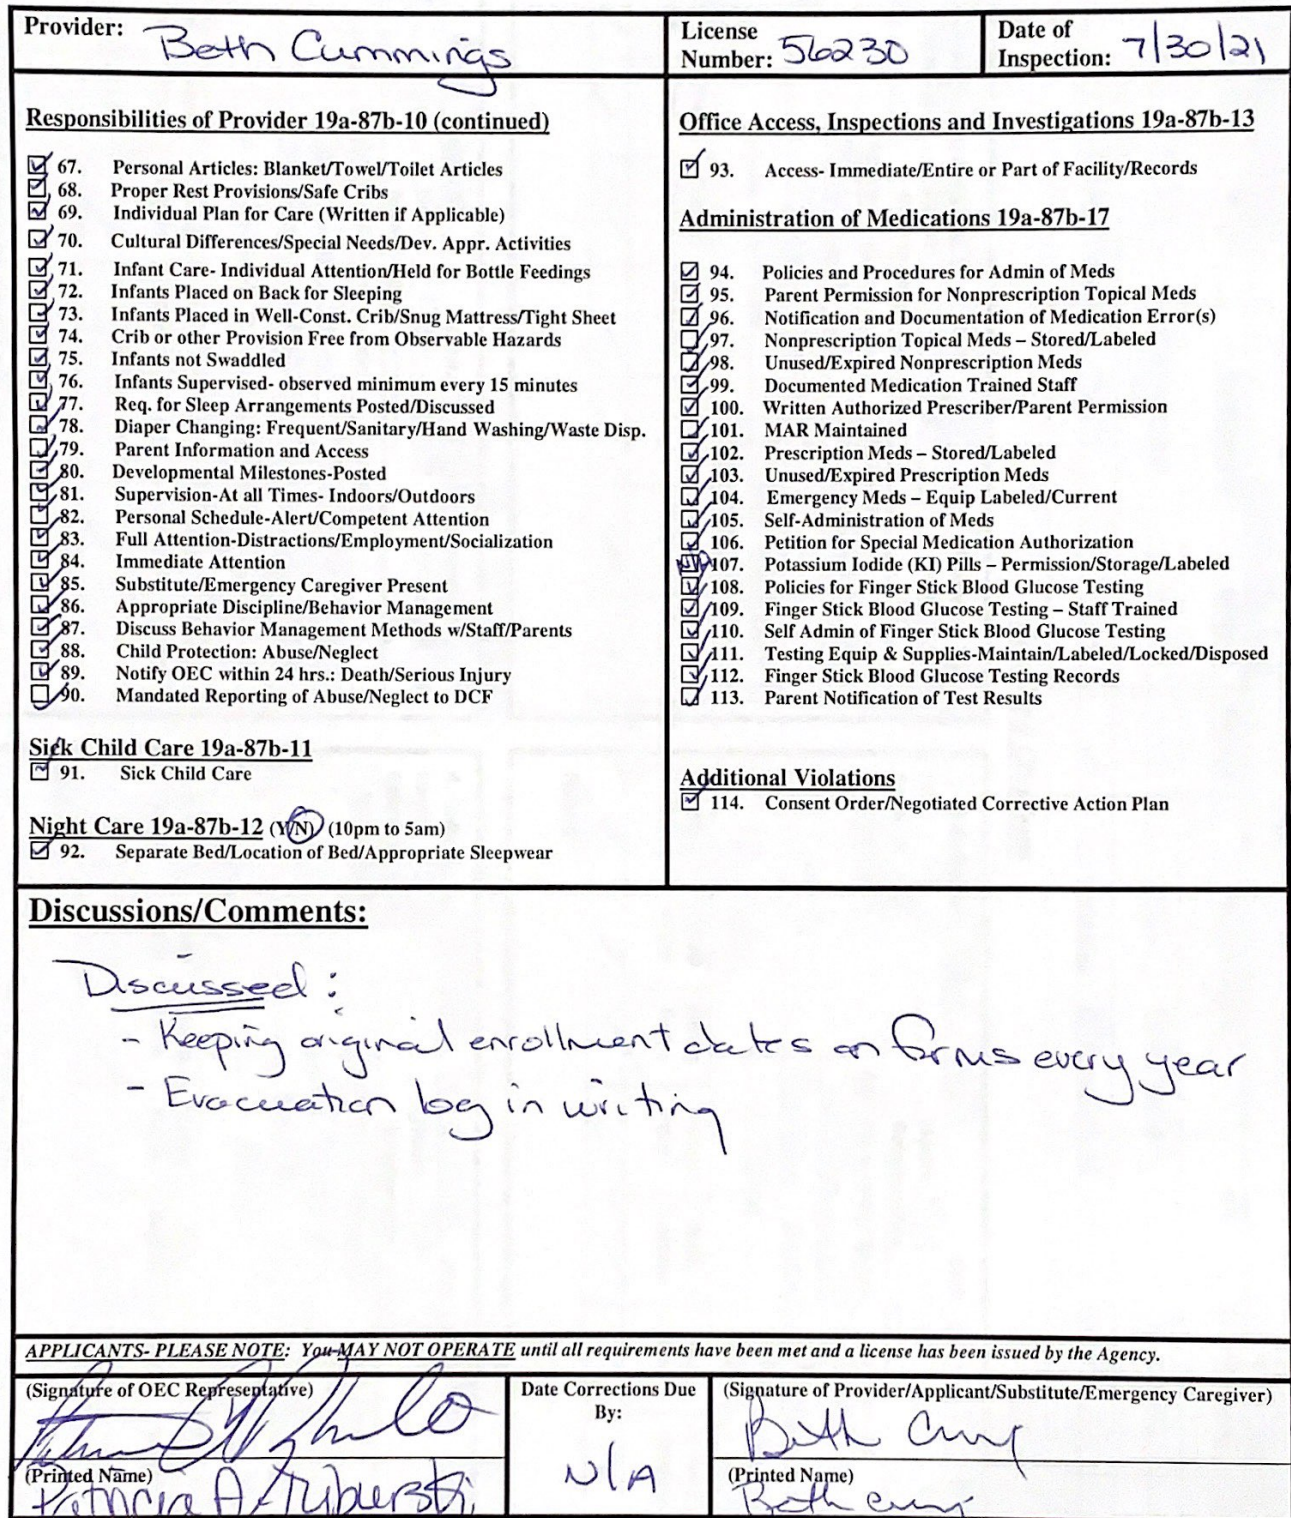 Provider: Beth Cummings
License Number: 56230
Date of Inspection: 7/30/21
Responsibilities of Provider 19a-87b-10 (continued)
67. Personal Articles: Blanket/Towel/Toilet Articles
68. Proper Rest Provisions/Safe Cribs
69. Individual Plan for Care (Written if Applicable)
70. Cultural Differences/Special Needs/Dev. Appr. Activities
71. Infant Care- Individual Attention/Held for Bottle Feedings
72. Infants Placed on Back for Sleeping
73. Infants Placed in Well-Const. Crib/Snug Mattress/Tight Sheet
74. Crib or other Provision Free from Observable Hazards
75. Infants not Swaddled
76. Infants Supervised- observed minimum every 15 minutes
77. Req. for Sleep Arrangements Posted/Discussed
78. Diaper Changing: Frequent/Sanitary/Hand Washing/Waste Disp.
79. Parent Information and Access
80. Developmental Milestones-Posted
81. Supervision-At all Times- Indoors/Outdoors
82. Personal Schedule-Alert/Competent Attention
83. Full Attention-Distractions/Employment/Socialization
84. Immediate Attention
85. Substitute/Emergency Caregiver Present
86. Appropriate Discipline/Behavior Management
87. Discuss Behavior Management Methods w/Staff/Parents
88. Child Protection: Abuse/Neglect
89. Notify OEC within 24 hrs.: Death/Serious Injury
90. Mandated Reporting of Abuse/Neglect to DCF
Sick Child Care 19a-87b-11
91. Sick Child Care
Night Care 19a-87b-12 (Y/N) (10pm to 5am)
92. Separate Bed/Location of Bed/Appropriate Sleepwear
Office Access, Inspections and Investigations 19a-87b-13
93. Access- Immediate/Entire or Part of Facility/Records
Administration of Medications 19a-87b-17
94. Policies and Procedures for Admin of Meds
95. Parent Permission for Nonprescription Topical Meds
96. Notification and Documentation of Medication Error(s)
97. Nonprescription Topical Meds – Stored/Labeled
98. Unused/Expired Nonprescription Meds
99. Documented Medication Trained Staff
100. Written Authorized Prescriber/Parent Permission
101. MAR Maintained
102. Prescription Meds – Stored/Labeled
103. Unused/Expired Prescription Meds
104. Emergency Meds – Equip Labeled/Current
105. Self-Administration of Meds
106. Petition for Special Medication Authorization
107. Potassium Iodide (KI) Pills – Permission/Storage/Labeled
108. Policies for Finger Stick Blood Glucose Testing
109. Finger Stick Blood Glucose Testing – Staff Trained
110. Self Admin of Finger Stick Blood Glucose Testing
111. Testing Equip & Supplies-Maintain/Labeled/Locked/Disposed
112. Finger Stick Blood Glucose Testing Records
113. Parent Notification of Test Results
Additional Violations
114. Consent Order/Negotiated Corrective Action Plan
Discussions/Comments:
Discussed:
- Keeping original enrollment dates on forms every year
- Evacuation log in writing
APPLICANTS- PLEASE NOTE: You MAY NOT OPERATE until all requirements have been met and a license has been issued by the Agency.
(Signature of OEC Representative)
(Printed Name)
Patricia A.
Date Corrections Due By:
N/A
(Signature of Provider/Applicant/Substitute/Emergency Caregiver)
Beth
(Printed Name)
Beth